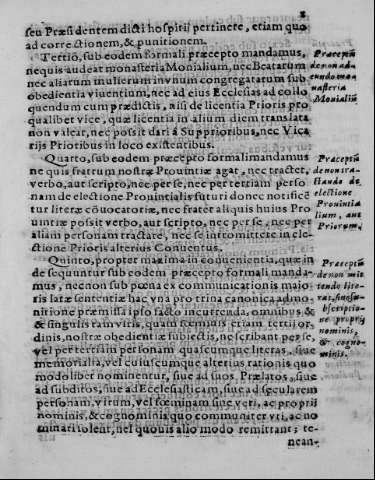 seu Præsidentem dicti hospitii pertinere, etiam quo
ad correctionem, & punitionem.
Tertio, sub eodem formali præcepto mandamus,
nequis audeat monasteria Monialium, nec Beatarum
nec aliarum mulierum in vnum congregatarum sub
obedientia viuentium, nec ad eius Ecclesias ad collo
quendum cum prædictis, nisi de licentia Prioris pro
qualibet vice, quæ licentia in alium diem translata
non valeat, nec possit dari á Supprioribus, nec Vica
rijs Prioribus in loco existentibus.
Præceptũ
de non ad
eundo mo
nasteria
Monialiũ
Quarto, sub eodem præcepto formali mandamus
ne quis fratrum nostræ Prouintiæ agat, nec tractet,
verbo, aut scripto, nec per se, nec per tertiam perso
nam de electione Prouintialis futuri donec notificẽ
tur literæ cõuocatoriæ, nec frater aliquis huius Pro
uintiæ possit verbo, aut scripto, nec per se, nec per
aliam personam tractare, nec se intromittere in ele
ctione Prioris alterius Conuentus.
Præceptũ
de non tra-
ctando de
electione
Prouintia
lium, aut
Priorum.
Quinto, propter maxima inconuenientia, quæ in
de sequuntur sub eodem præcepto formali manda-
mus, necnon sub pœna excommunicationis maio-
ris latæ sententiæ hac vna pro trina canonica admo
nitione præmissa ipso facto incurrenda, omnibus, &
& singulis tam viris, quam fœminis etiam tertij or,
dinis, nostræ obedientiæ subiectis, ne scribant per se,
vel per tertiam personam quascumque literas, siue
memorialia, vel cuiuscumque alterius rationis quo
modolibet nominentur, siue ad suos Prælatos, siue
ad subditos, siue ad Ecclesiasticam, siue ad sęcularem
personam, virum, vel fœminam sine veri, ac proprij
nominis, & cognominis quo communiter vti, ac no
minari solent, vel quouis alio modo remittant; te-
nean-
Præceptũ
de non mit
tendo lite-
ras, sine su-
bscriptio-
ne proprij
nominis,
& cogno-
minis.